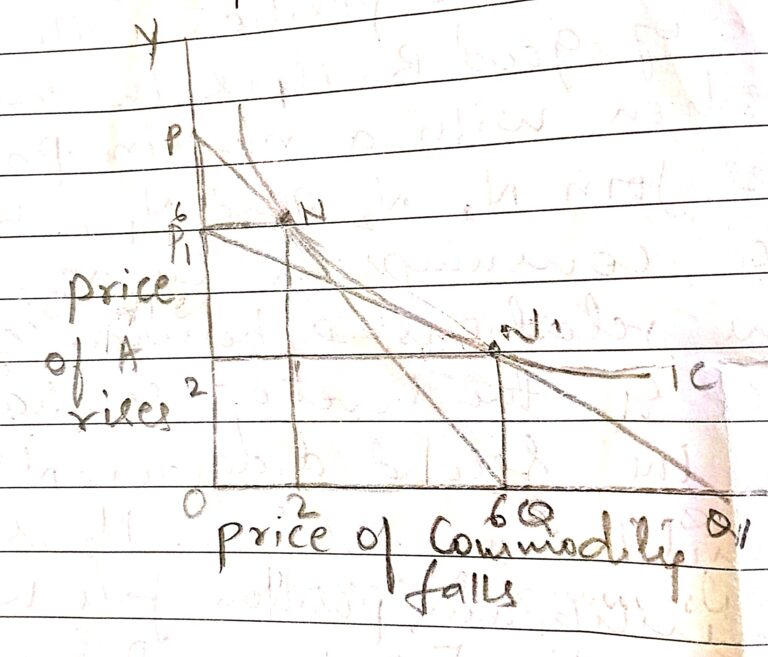 Y
P
6 N
P1
price
N1
of A
2 IC
rises
0 2 6 Q Q1
price of Commodity
falls